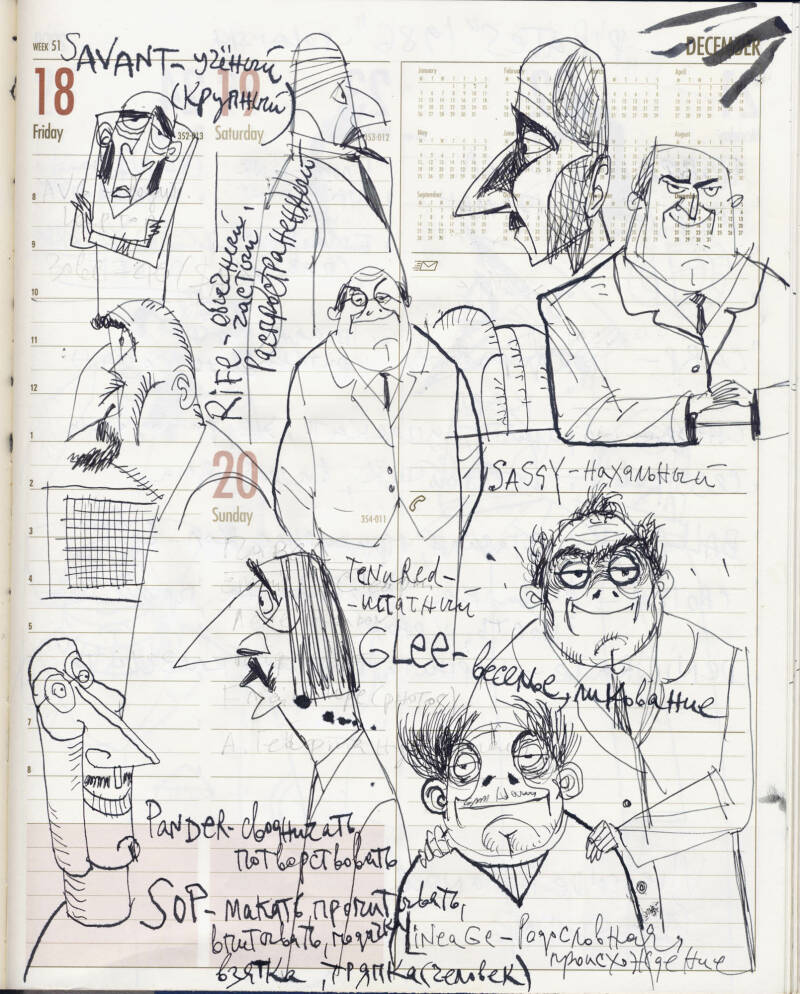 WEEK 51
DECEMBER
18
Friday
19
Saturday
352-013
353-012
SAVANT - учёный
(крупный)
January
February
April
May
August
September
RIFE - обычный,
частый,
распространенный
8
9
10
11
12
1
2
3
4
5
7
8
20
Sunday
354-011
SASSY - нахальный
TENURED -
- штатный
GLEE -
веселье, ликование
PANDER - сводничать,
потворствовать
SOP - макать, пропитывать,
впитывать, подачка,
взятка, тряпка (человек)
LINEAGE - родословная,
происхождение